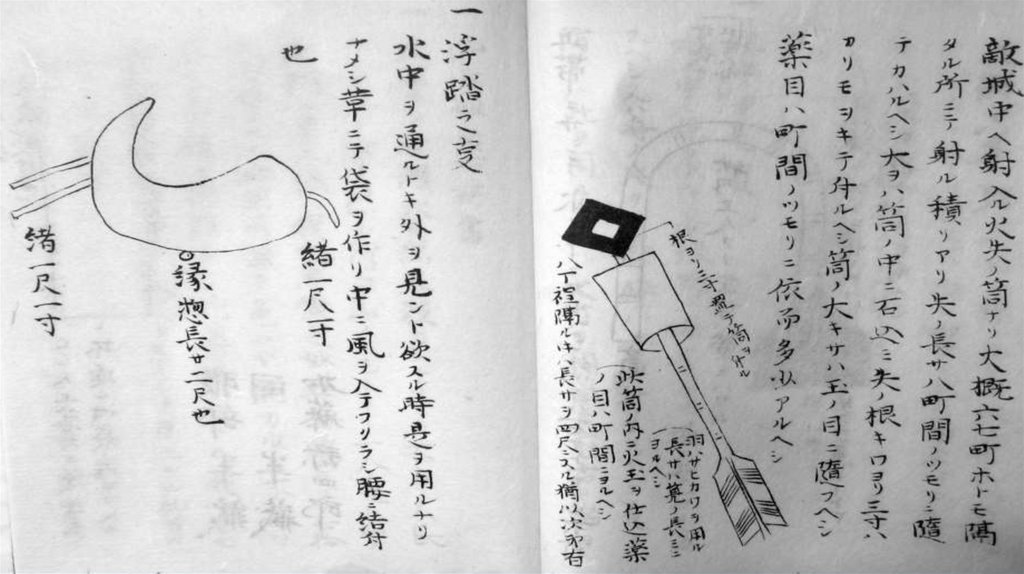 敵城中ヘ射入ル火矢ノ筒ナリ大概六七町ホトモ隔
タル所ニテ射ル積リアリ矢ノ長サハ町間ノツモリニ隨
テカハルヘシ大ヲハ筒ノ中ニ石込ミ矢ノ根キワヨリ三寸ハ
カリモヲキテ付ルヘシ筒ノ大キサハ玉ノ目ニ隨フヘシ
薬目ハ町間ノツモリニ依而多少アルヘシ
根ヨリ三寸置テ筒ヲ付ル
羽ハサヒカワヲ用ル
長サハ篦ノ長ミニ
ヨルヘシ
此筒ノ内ニ火玉ヲ仕込薬
ノ目ハ町間ニヨルヘシ
八丁程隔ルハ長サヲ四尺ニスル猶以次第有
一 浮踏之支
水中ヲ通ルトキ外ヲ見ント欲スル時是ヲ用ルナリ
ナメシ革ニテ袋ヲ作リ中ニ風ヲ入テフリラシ腰ニ結付
也
緒一尺一寸
縁惣長サ二尺也
緒一尺一寸